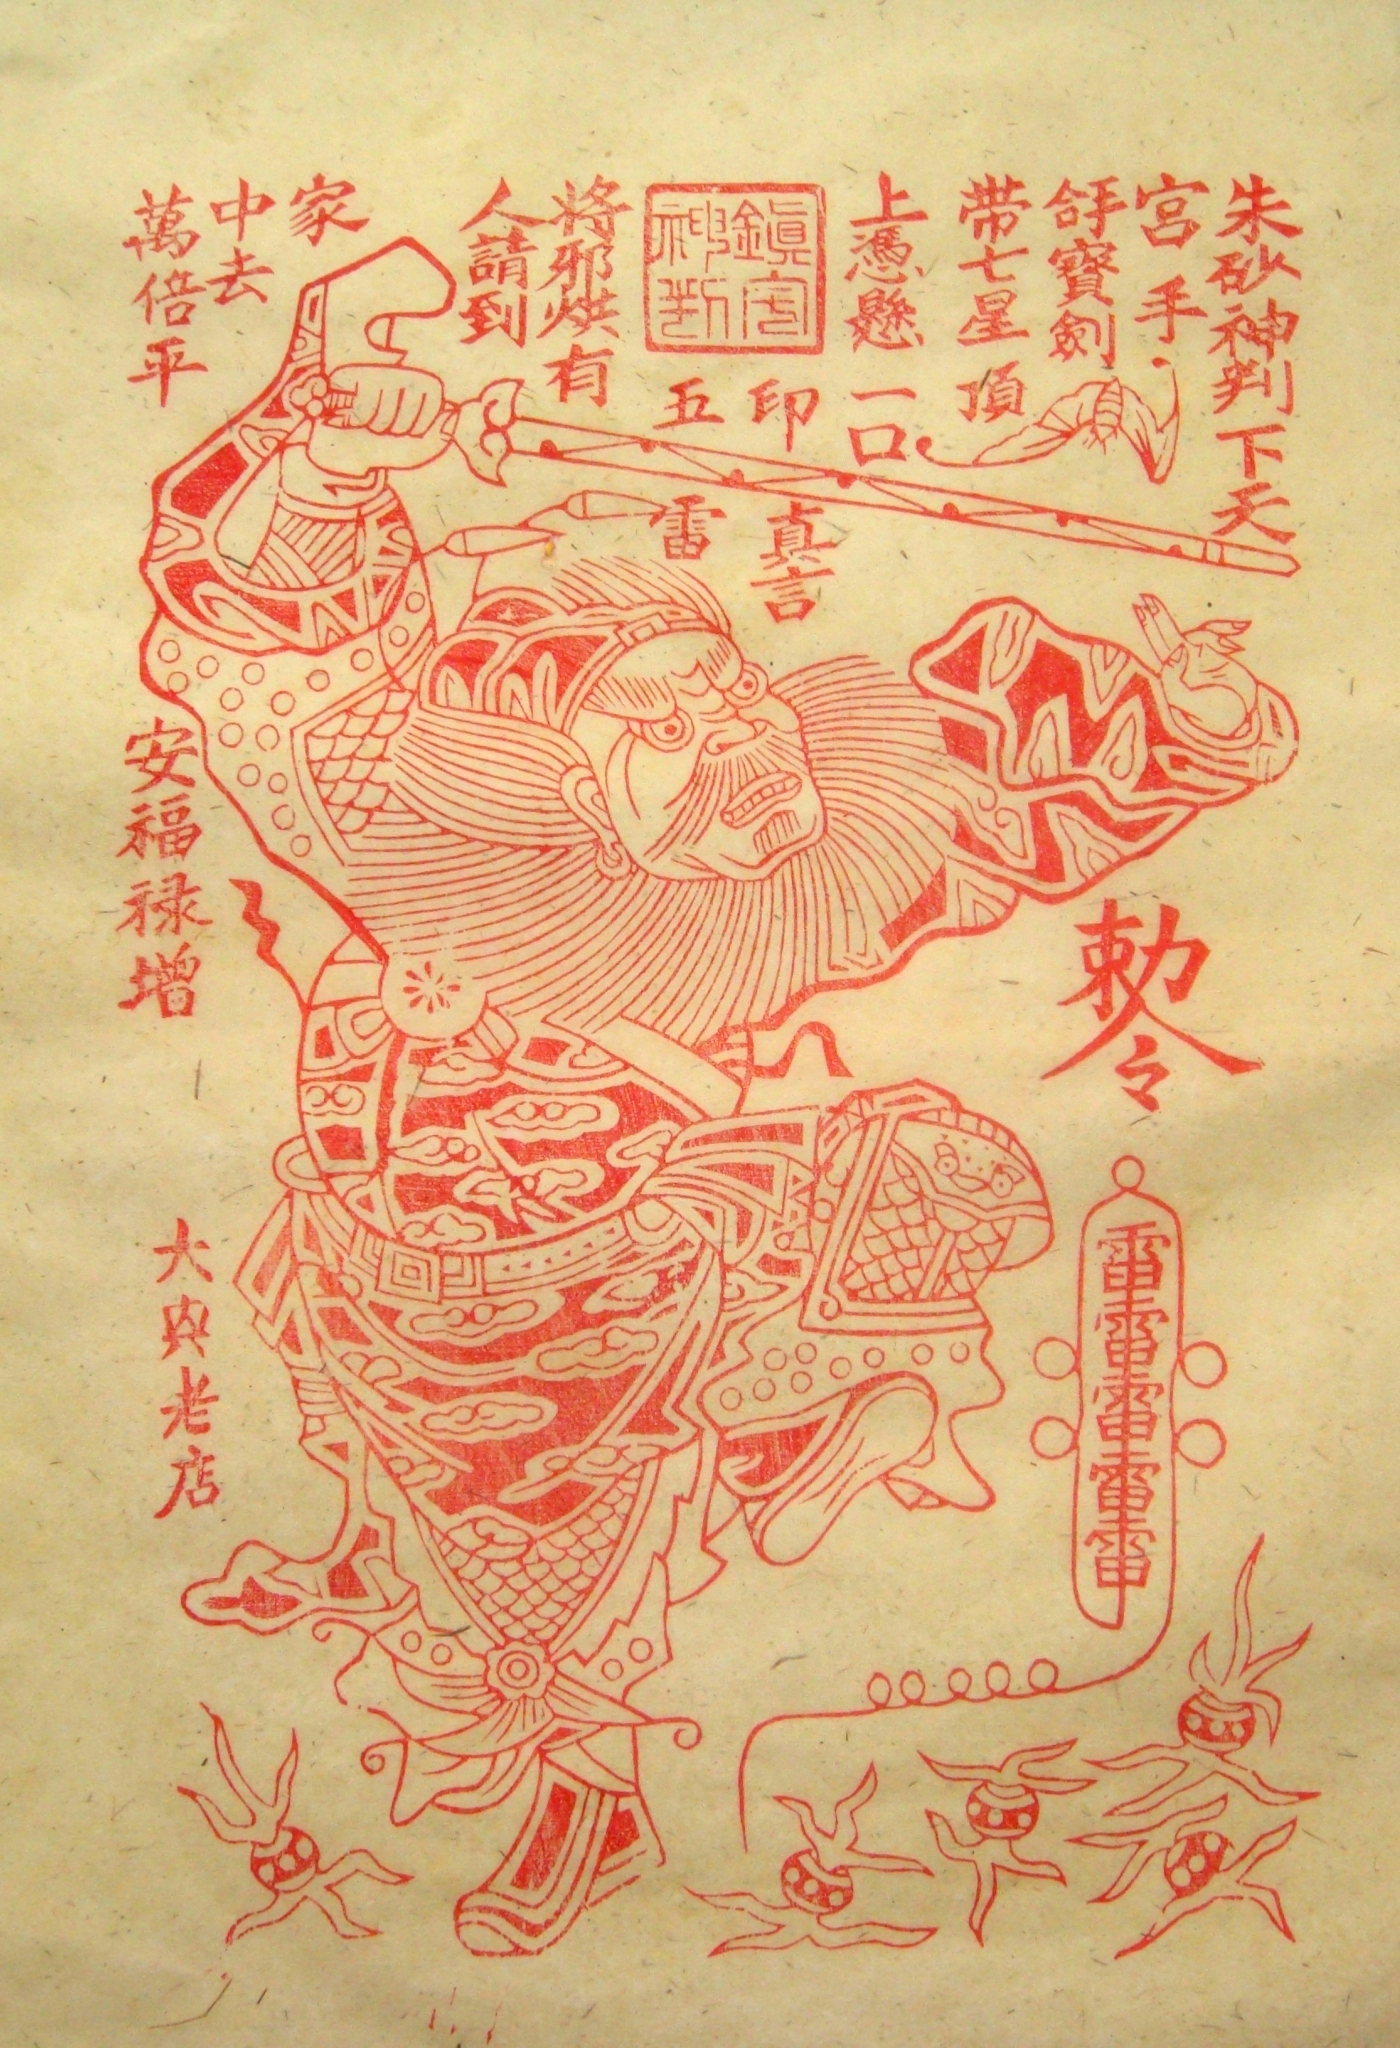 朱砂神判下天
宮手
寶劍
带七星頂
上憑懸一口
鎮宅
神判
印
五雷
真言
將邪烘有
人請到
家
中去
萬倍平
安福禄增
勅令
雷雷雷雷雷
大内老店